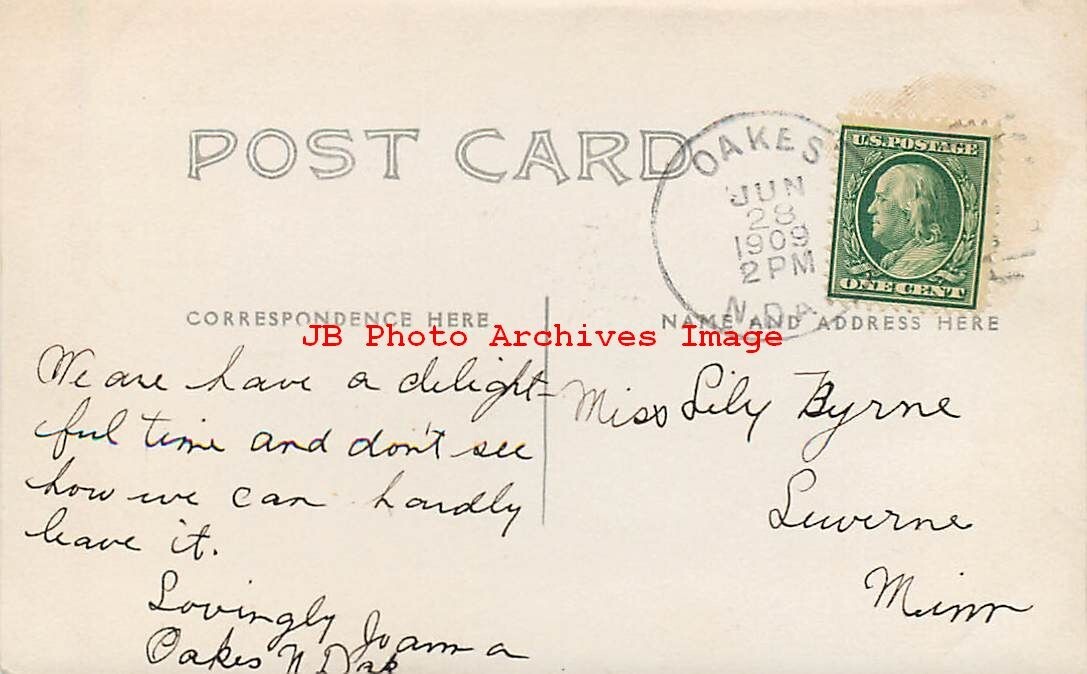 POST CARD
OAKES
JUN
28
1909
2PM
N.DAK
U.S. POSTAGE
ONE CENT
CORRESPONDENCE HERE
NAME AND ADDRESS HERE
JB Photo Archives Image
We are have a delight-
ful time and don't see
how we can hardly
leave it.
Lovingly Joanna
Oakes N Dak
Miss Lily Byrne
Luverne
Minn